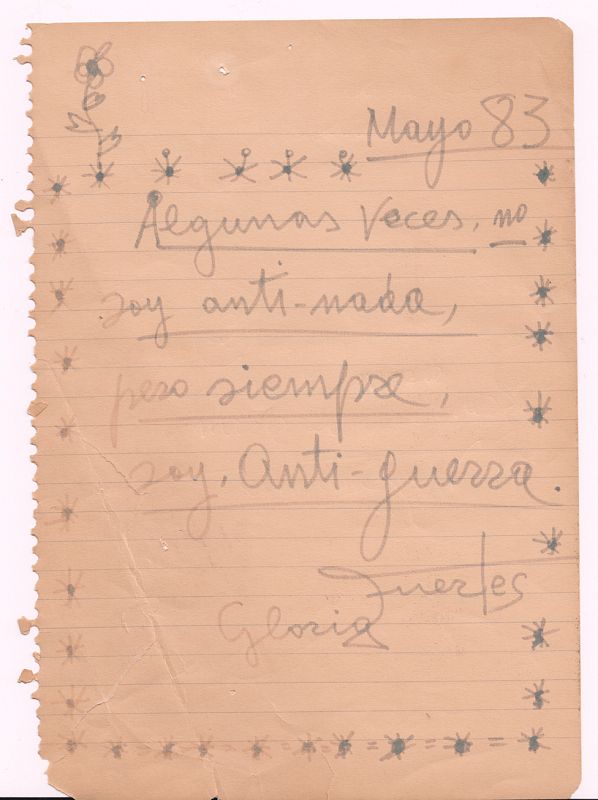 Mayo 83
Algunas Veces, no
soy anti-nada,
pero siempre,
soy, Anti-guerra.
Fuertes
Gloria